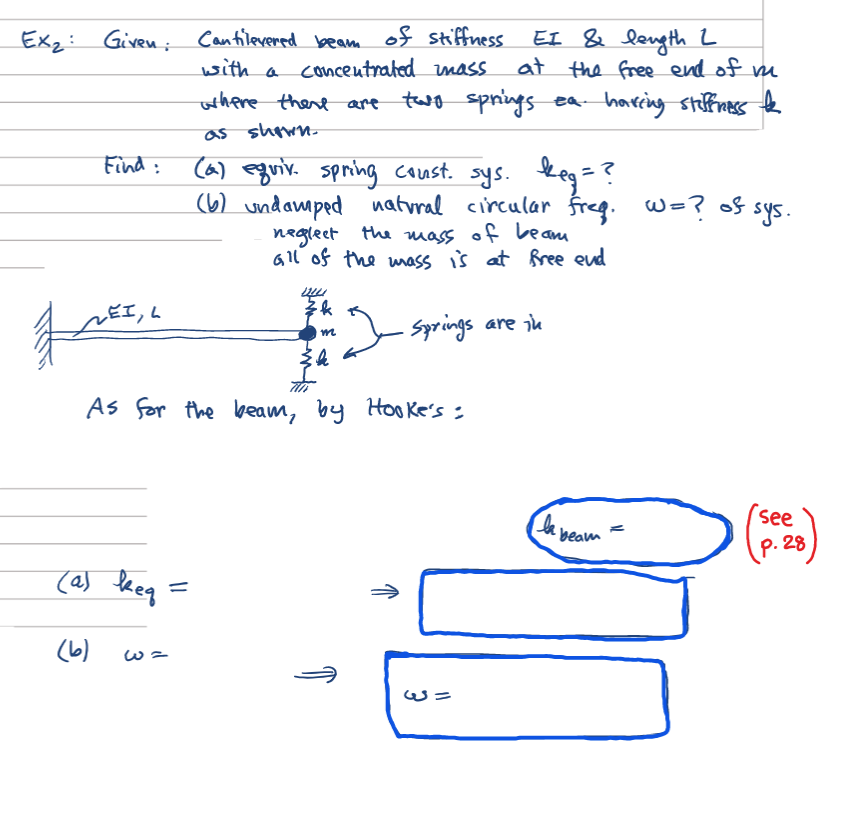 Ex2: Given: Cantilevered beam of stiffness EI & length L
with a concentrated mass at the free end of m
where there are two springs ea. having stiffness k
as shown.
Find: (a) equiv. spring const. sys. keq = ?
(b) undamped natural circular freq. ω = ? of sys.
neglect the mass of beam
all of the mass is at free end
EI, L
k
m
springs are in
k
As for the beam, by Hooke's:
k beam =
(see p. 28)
(a) keq = ⇒
(b) ω = ⇒
ω =